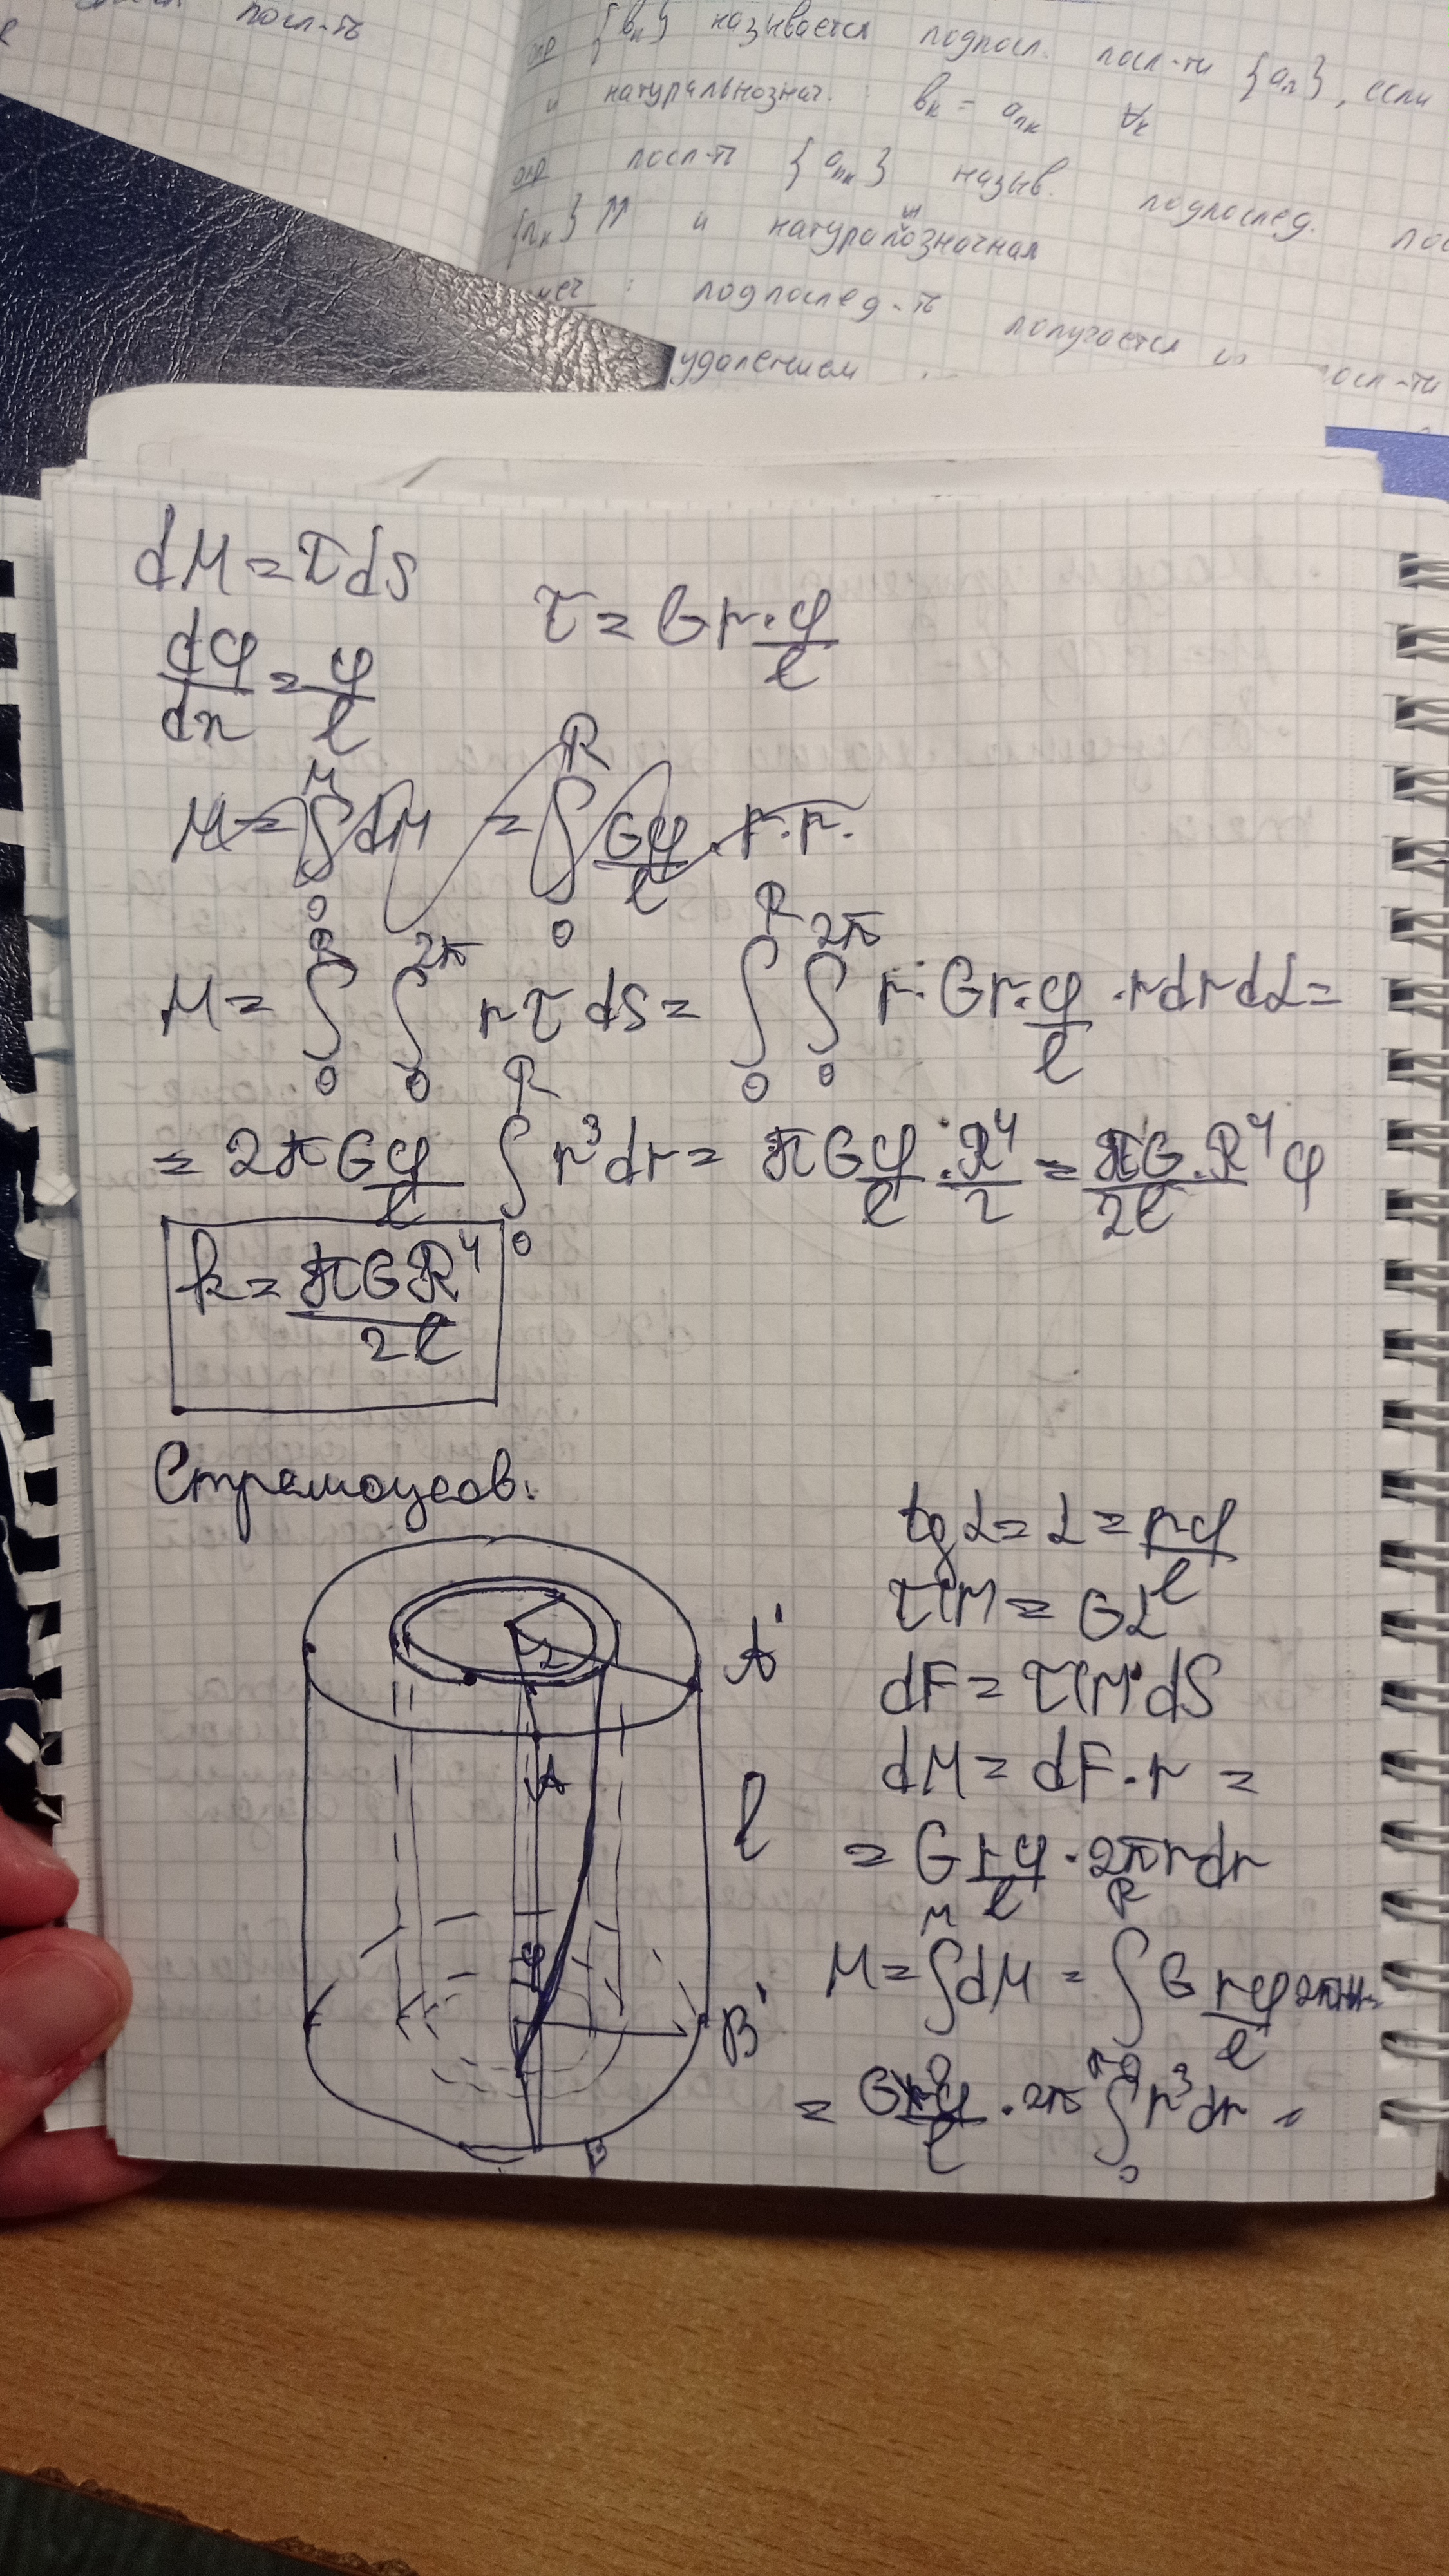 посл-ть
опр {bₖ} называется подпосл. посл-ти {aₙ}, если
и натуральнознач. : bₖ = aₙₖ ∀k
опр посл-ть {aₙₖ} назыв. подпослед.
{nₖ} ⇈ и натуральнозначная
: подпослед-ть получается
удалением
dM = τdS
τ = Gr·φ/l
dφ/dx = φ/l
M = ∫₀ᴹ dM = ∫₀ᴿ Gφ/l · r·r·
M = ∫₀ᴿ ∫₀²π rτ dS = ∫₀ᴿ ∫₀²π r·Gr·φ/l ·rdrdα =
= 2πGφ/l ∫₀ᴿ r³dr = πGφ/l · R⁴/2 = πG·R⁴/2l φ
k = πGR⁴/2l
Стремоусов:
tgα = α = rφ/l
τ(r) = Gα
dF = τ(r)dS
dM = dF·r =
= G rφ/l · 2πrdr
M = ∫dM = ∫G rφ/l
= Gφ/l · 2π ∫₀ᴿ r³dr =
A'
α
A
l
B'
B